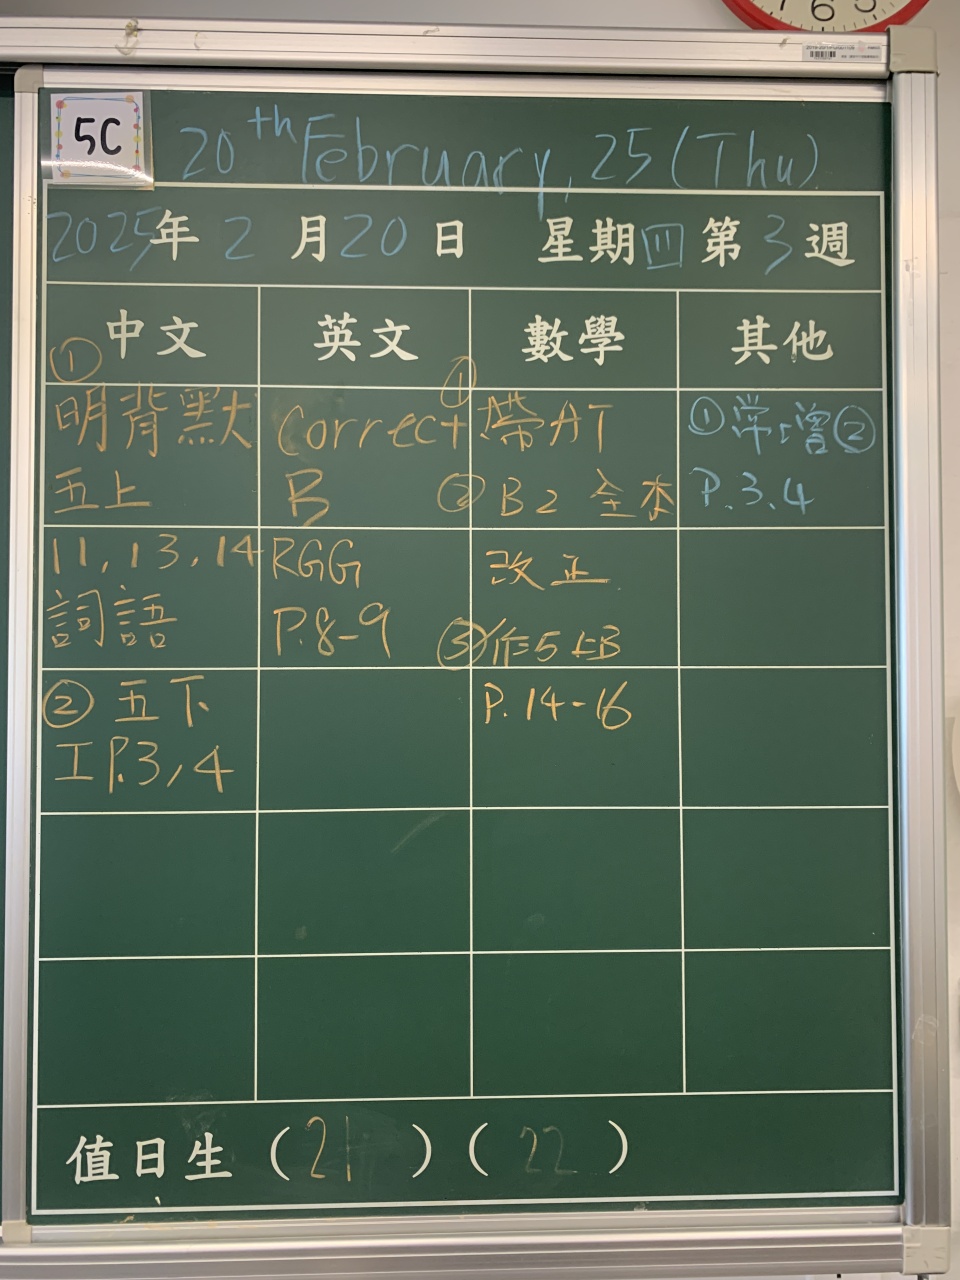 5C
20th February, 25 (Thu).
2025年 2 月 20 日 星期四 第 3 週
中文 英文 數學 其他
① 明背默
五上
11, 13, 14
詞語
② 五下
工P.3, 4
Correct
B
RGG
P.8-9
① 帶AT
② B2 全本
改正
③ 作5上B
P. 14-16
① 常 ②
P.3.4
值日生 ( 21 ) ( 22 )